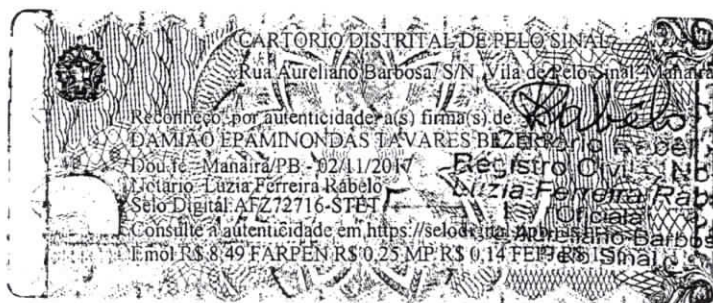 CARTÓRIO DISTRITAL DE PELO SINAL
Rua Aureliano Barbosa, S/N, Vila de Pelo Sinal, Manaíra
Reconheço, por autenticidade, a(s) firma(s) de:
DAMIÃO EPAMINONDAS TAVARES BEZERRA
Dou fé. Manaíra/PB - 02/11/2017
Notário: Luzia Ferreira Rabelo
Selo Digital: AFZ72716-STET
Consulte a autenticidade em https://selodigital
Emol R$ 8,49 FARPEN R$ 0,25 MP R$ 0,14 FEPJ R$
Rabêlo
Registro Civil
Luzia Ferreira Rab
Oficiala
Barbos
Sinal